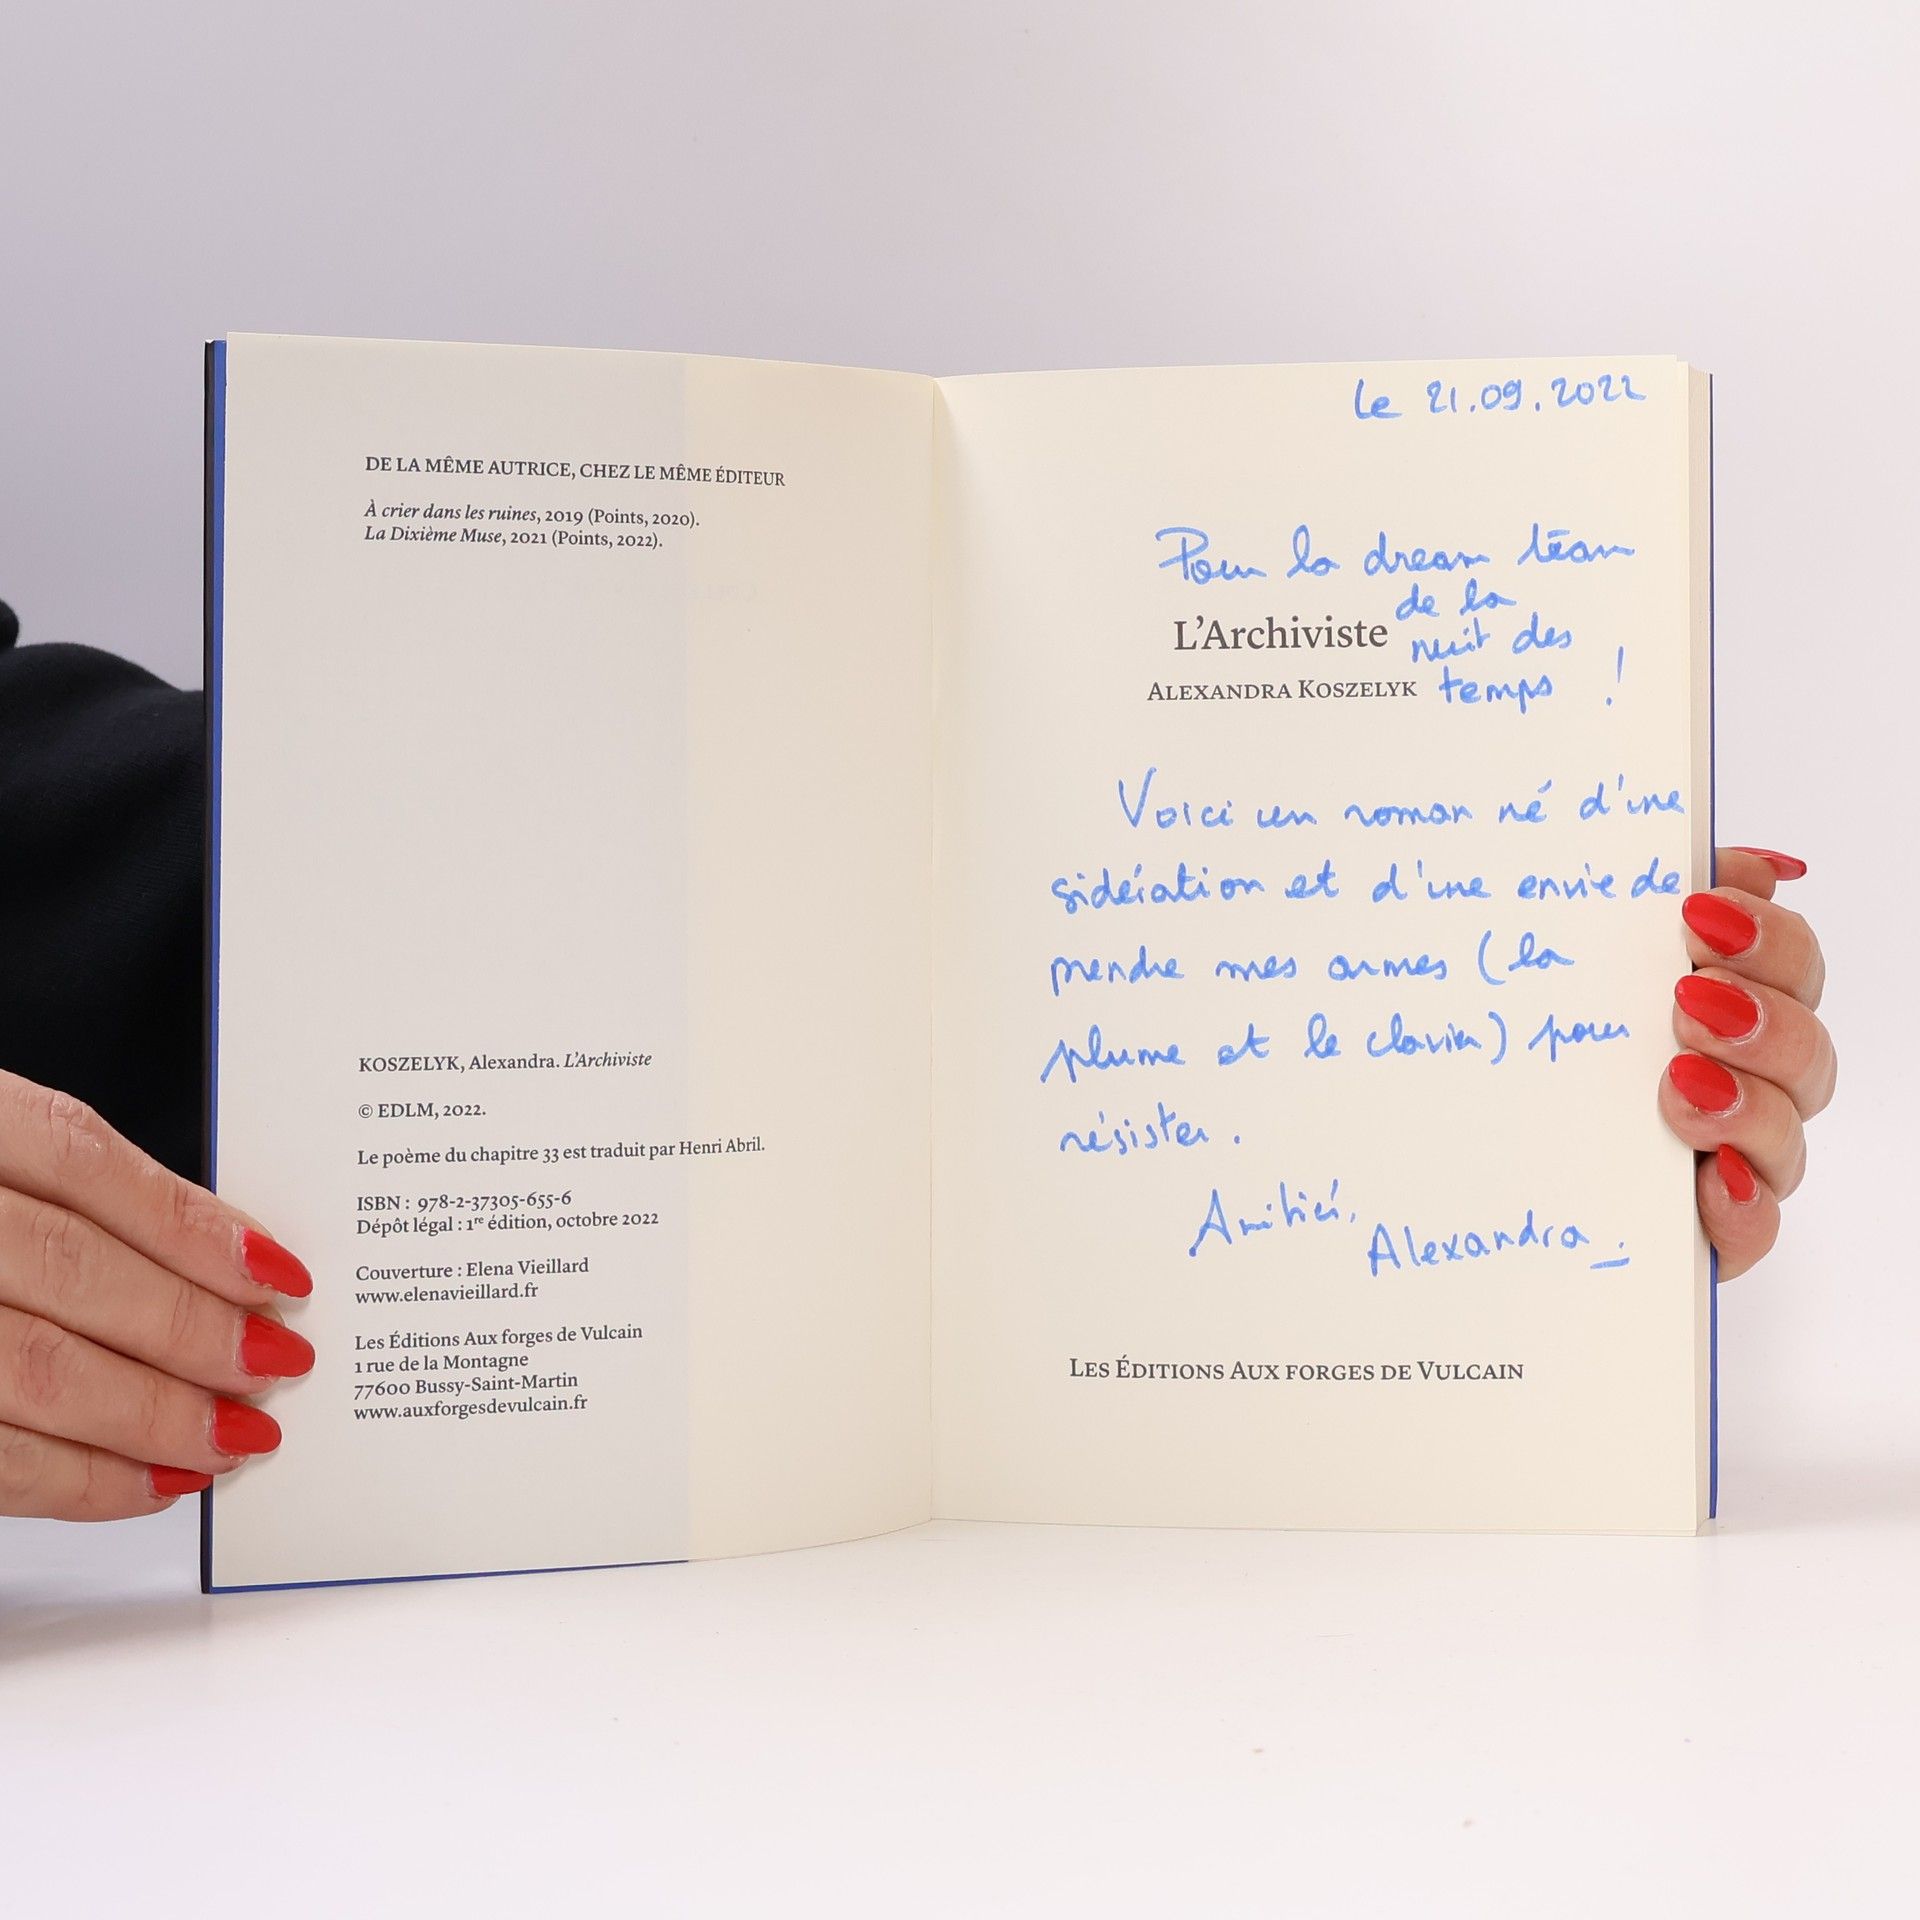 DE LA MÊME AUTRICE, CHEZ LE MÊME ÉDITEUR
À crier dans les ruines, 2019 (Points, 2020).
La Dixième Muse, 2021 (Points, 2022).
KOSZELYK, Alexandra. L'Archiviste
© EDLM, 2022.
Le poème du chapitre 33 est traduit par Henri Abril.
ISBN : 978-2-37305-655-6
Dépôt légal : 1re édition, octobre 2022
Couverture : Elena Vieillard
www.elenavieillard.fr
Les Éditions Aux forges de Vulcain
1 rue de la Montagne
77600 Bussy-Saint-Martin
www.auxforgesdevulcain.fr
Le 21.09.2022
Pour la dream team
de la
nuit des
temps !
L'Archiviste
ALEXANDRA KOSZELYK
Voici un roman né d'une
sidération et d'une envie de
prendre mes armes (la
plume et le clavier) pour
résister.
Amitiés,
Alexandra.
LES ÉDITIONS AUX FORGES DE VULCAIN